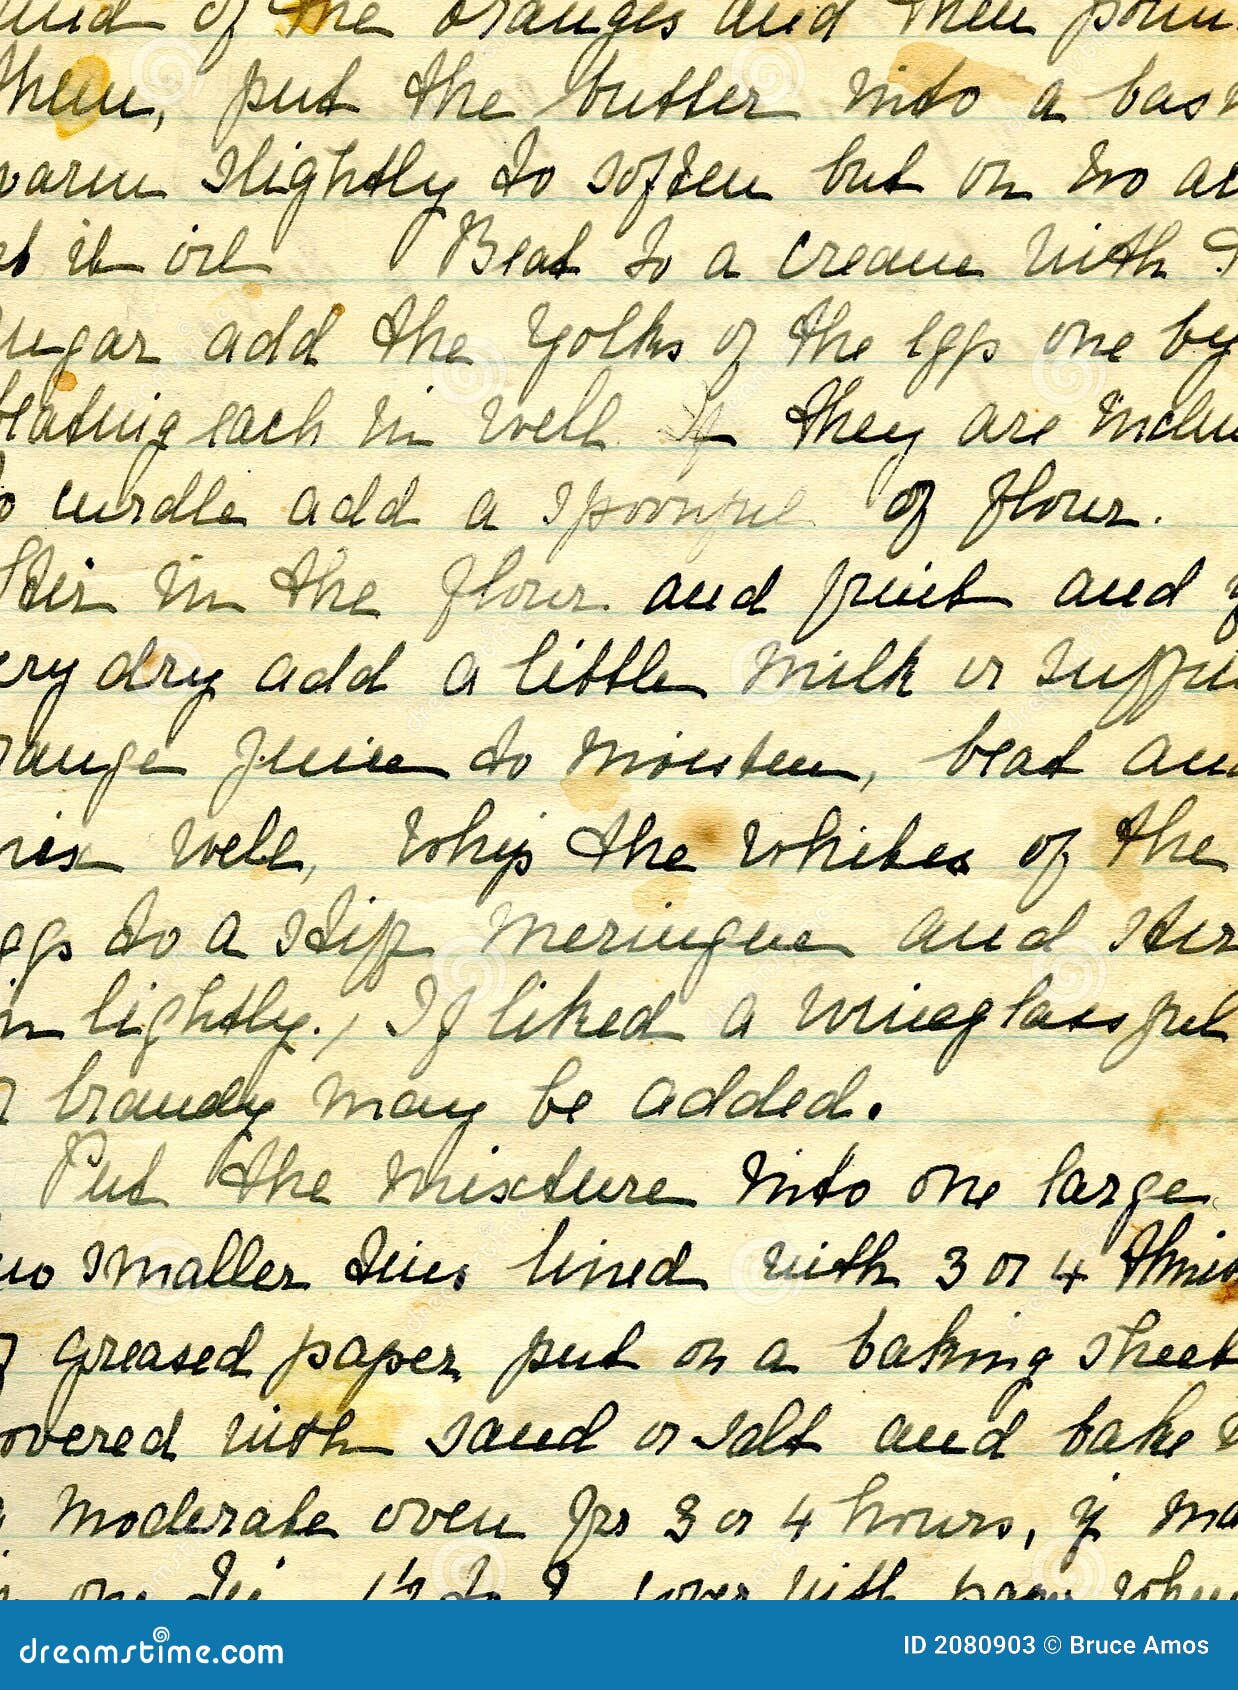 of the oranges and then
them, put the butter into a
slightly to soften but on no
it oil Beat to a cream with
add the yolks of the eggs one by
beating each in well If they are
curdle add a spoonful of flour.
Stir in the flour and fruit and
dry add a little milk or
juice to moisten, beat
well, Whip the whites of the
to a stiff meringue and stir
in lightly., If liked a wineglassful
brandy may be added.
Put the mixture into one large
smaller tins lined with 3 or 4
greased paper put on a baking sheet
with sand or salt and bake
moderate oven for 3 or 4 hours, if
cover with paper
dreamstime.com
ID 2080903 © Bruce Amos